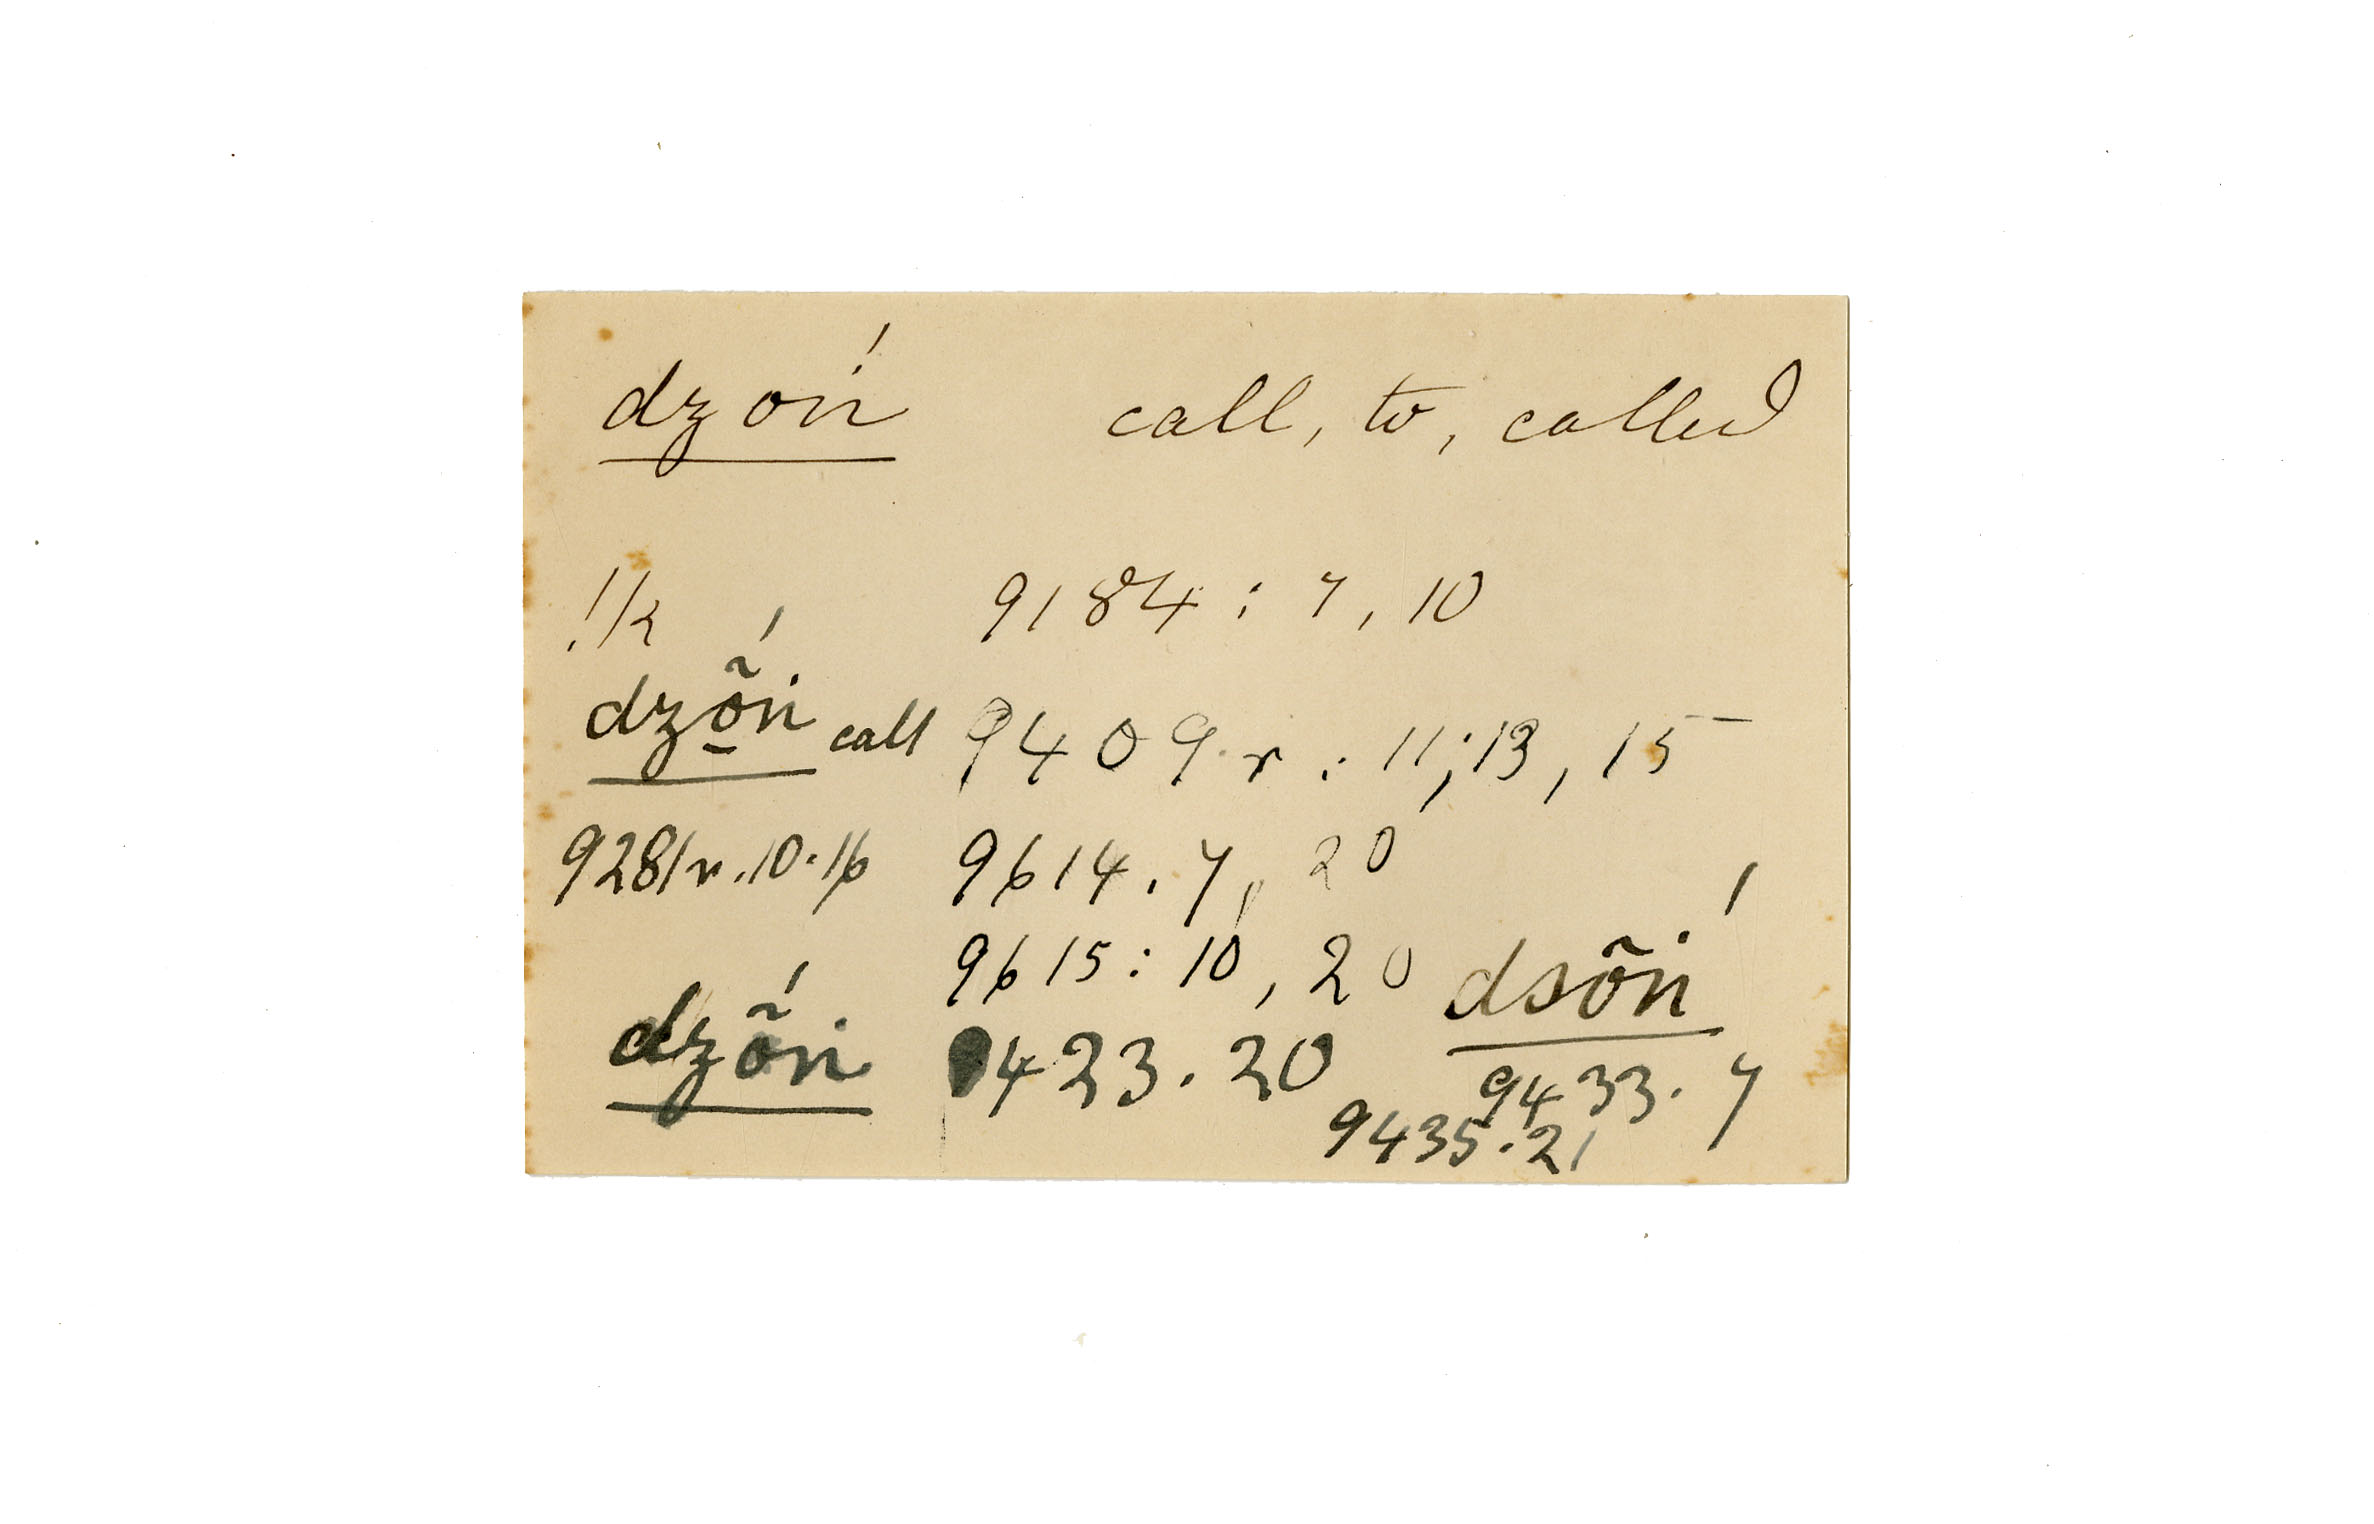 dzoṅ́ call, to, called
!/2 9184 : 7, 10
dzõ̱ṅ́ call 9409 r : 11; 13, 15
9281 r. 10. 16 9614. 7, 20
9615 : 10, 20 dsõṅ́
dzõṅ́ 9423. 20 9433. 7
9435. 21